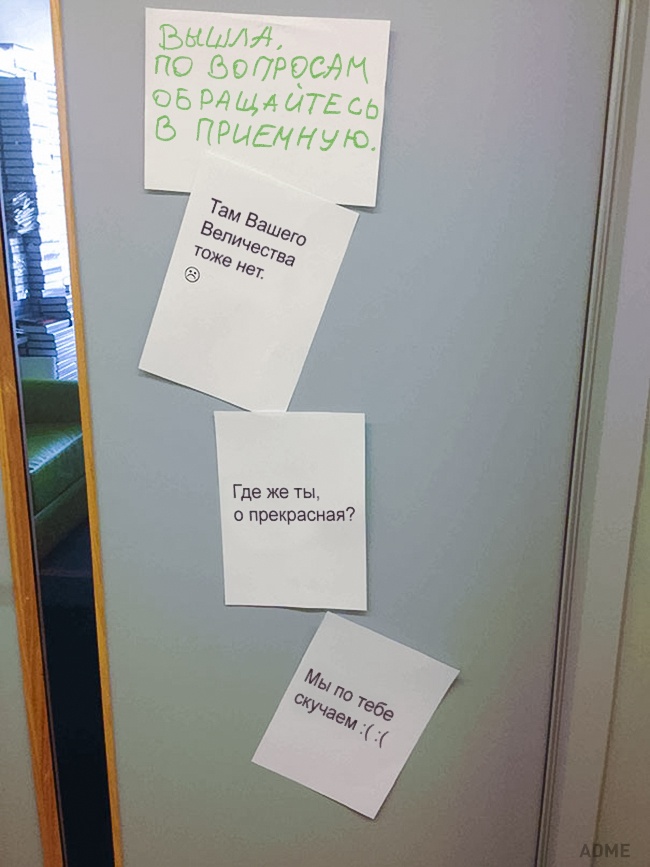 ВЫШЛА,
ПО ВОПРОСАМ
ОБРАЩАЙТЕСЬ
В ПРИЕМНУЮ.
Там Вашего
Величества
тоже нет.
☹
Где же ты,
о прекрасная?
Мы по тебе
скучаем :( :(
ADME